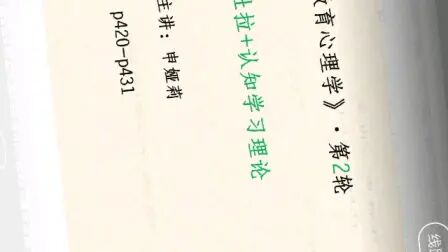 教育心理学》·第2轮
杜拉+认知学习理论
主讲：申娅莉
p420-p431
线